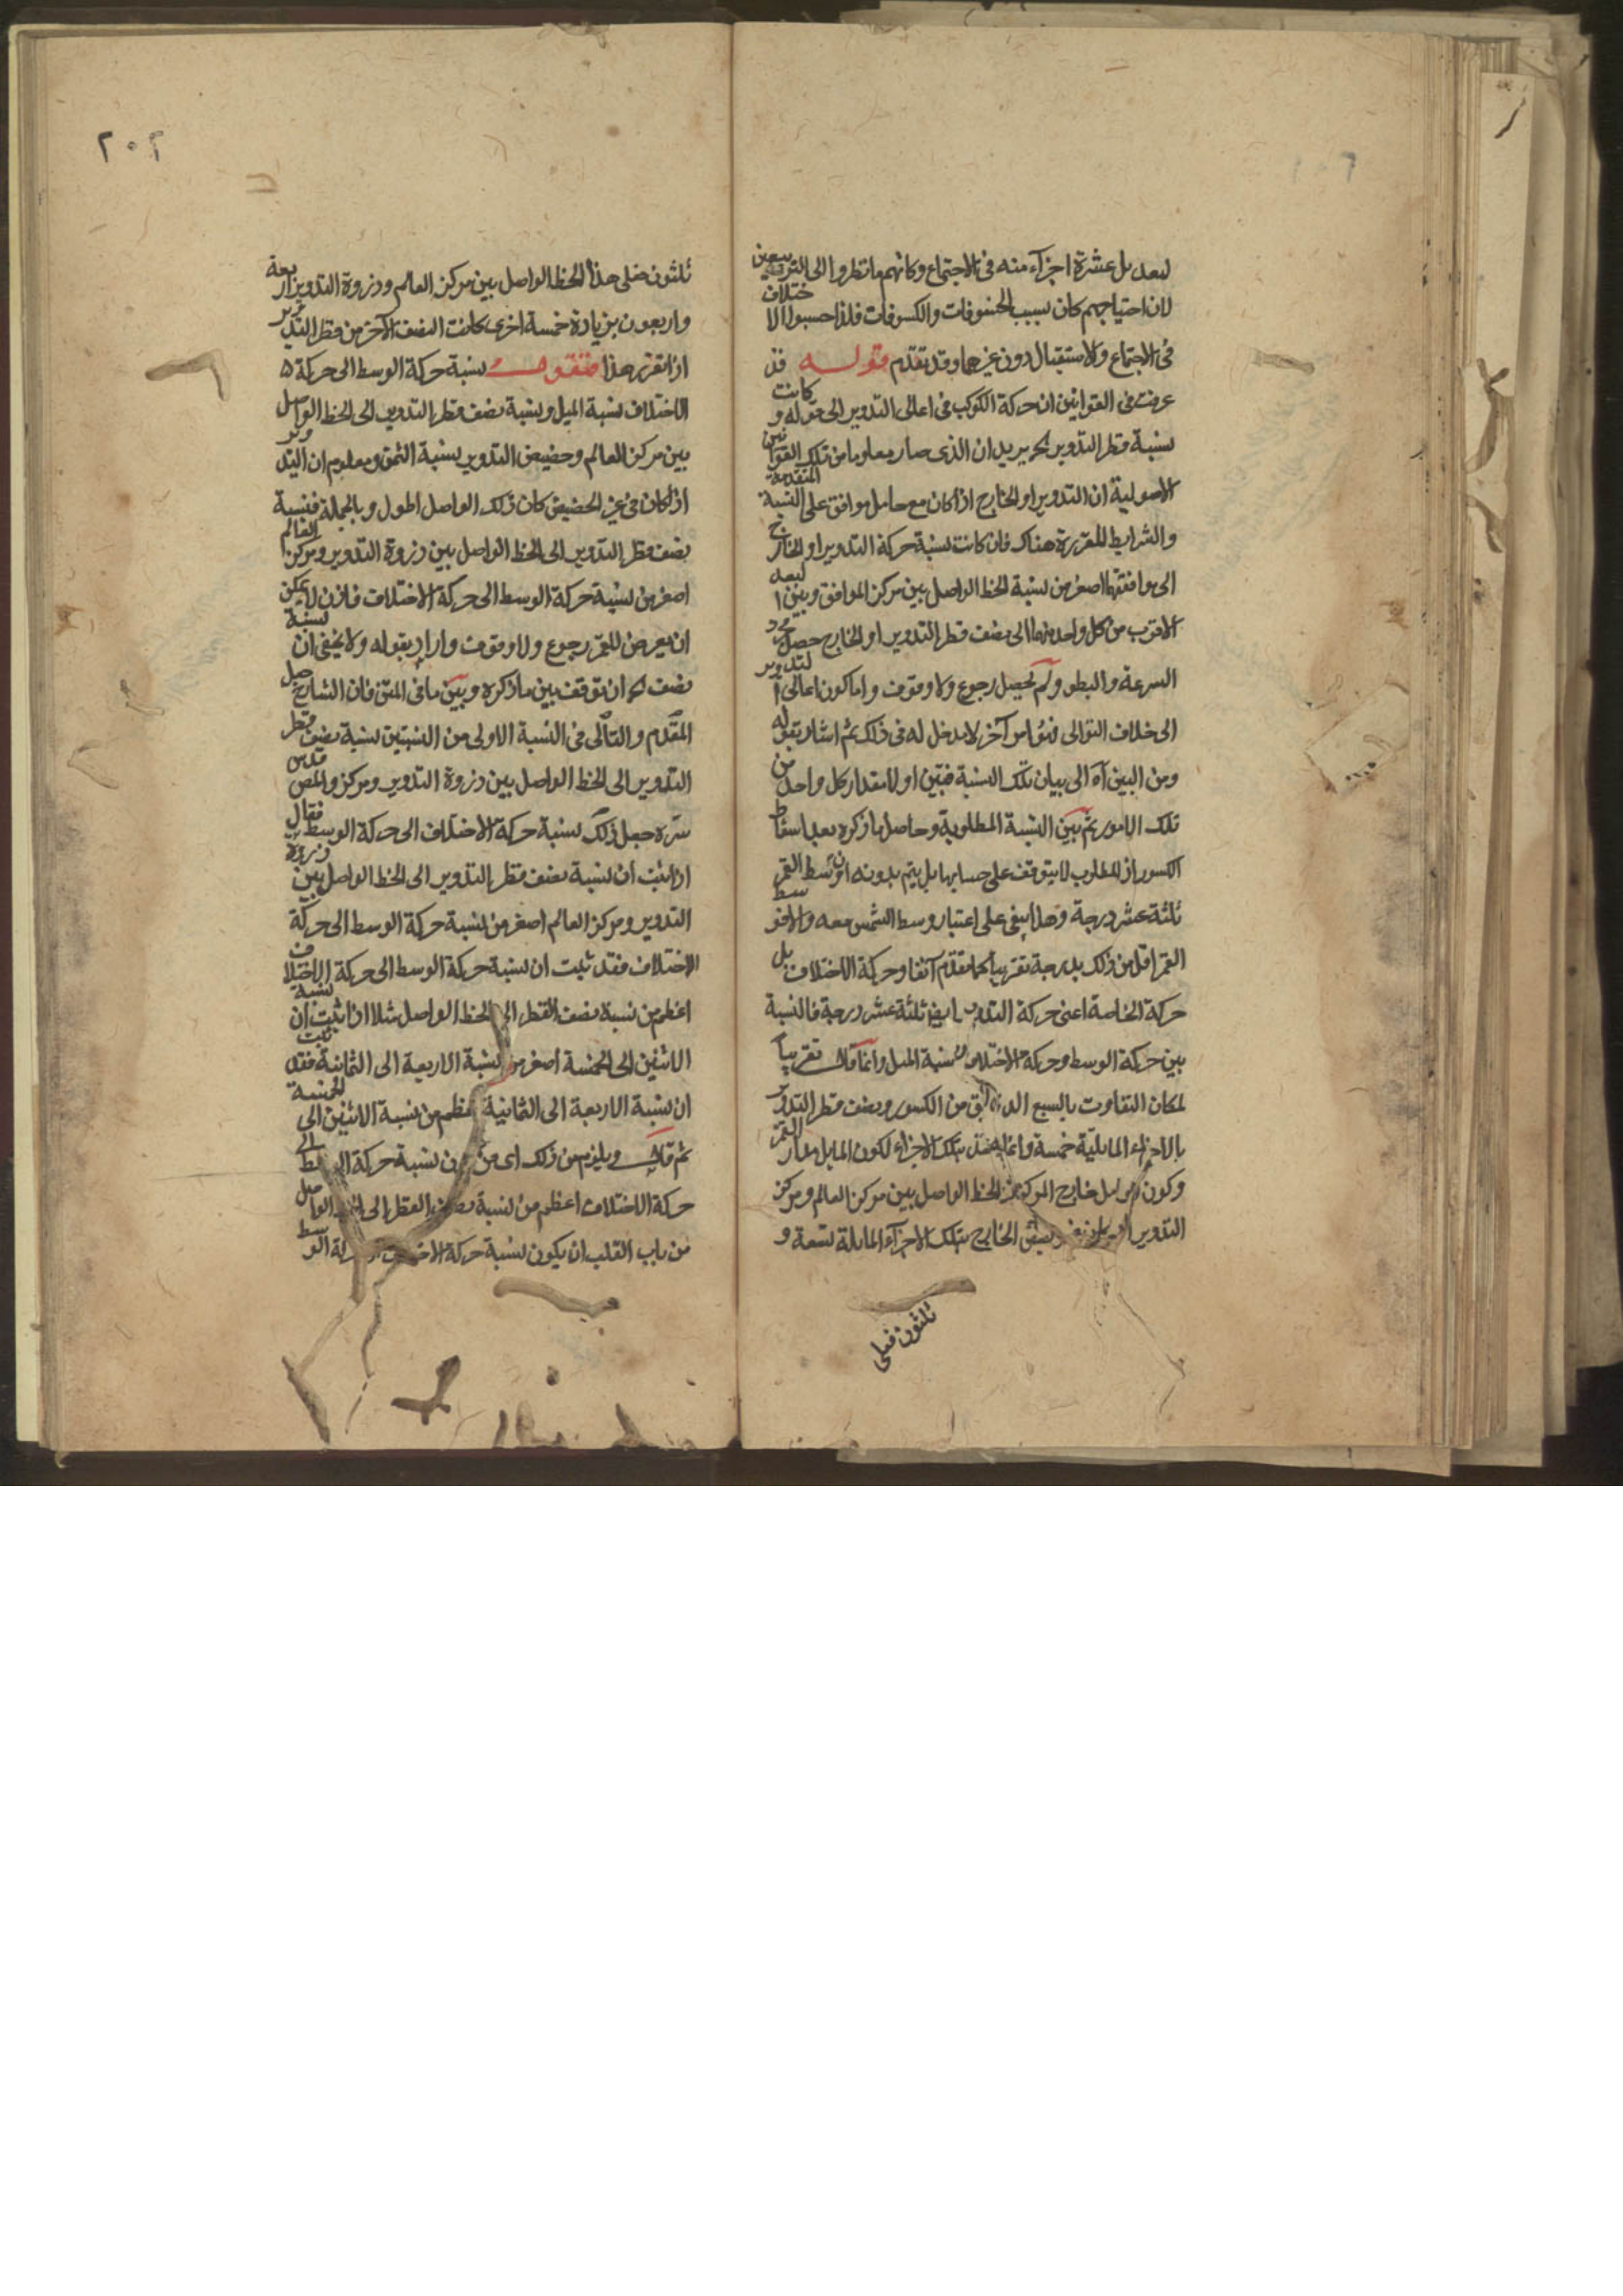 لبعد بل عشرة اجزآء منه فى الاجتماع وكانهم ما نظروا الى التربيعين
لان احتياجهم كان بسبب الخسوفات والكسوفات فلذا حسبوا الاختلاف
فى الاجتماع والاستقبال دون غيرهما وقد تقدم قوله قد
عرفت فى القوانين ان حركة الكوكب فى اعالى التدوير الى قوله وكانت
نسبة قطر التدوير يريد ان الذى صار معلوما من تلك القوانين
الاصولية المتقدمة ان التدوير او الخارج اذا كان مع حامل موافق على النسبة
والشرايط المقررة هناك فان كانت نسبة حركة التدوير او الخارج
الى موافقتها اصغر من نسبة الخط الواصل بين مركز الموافق وبين البعد
الاقرب من كل واحد منهما الى نصف قطر التدوير او الخارج حصل مجرد
السرعة والبطو ولم يحصل رجوع ولا وقوف واما كون اعالى التدوير
الى خلاف التوالى فهو امر آخر لا مدخل له فى ذلك ثم اشار بقوله
ومن البين آه الى بيان تلك النسبة فبين اولا مقدار كل واحد من
تلك الامور ثم بين النسبة المطلوبة وحاصل ما ذكره بعد اسقاط
الكسور اذ المطلوب لا يتوقف على حسابها بل يتم بدونه ان وسط القمر
ثلثة عشر درجة وهذا مبنى على اعتبار وسط الشمس معه والا فوسط
القمر اقل من ذلك بدرجة تقريبا كما تقدم آنفا وحركة الاختلاف بل
حركة الخاصة اعنى حركة التدوير ايضا ثلثة عشر درجة فالنسبة
بين حركة الوسط وحركة الاختلاف نسبة المثل وانما قال تقريبا
لمكان التفاوت بالسبع الدقايق من الكسور ونصف قطر التدوير
بالاجزاء المايلية خمسة وانما بتلك الاجزاء لكون المايل مدار القمر
وكون الحامل خارج المركز عنه الخط الواصل بين مركز العالم ومركز
التدوير الخارج بتلك الاجزآء المايلة تسعة و
ثلثون فعلى
٢٠٢
ثلثون فعلى هذا الخط الواصل بين مركز العالم وذروة التدوير اربعة
واربعون بزيادة خمسة اخرى كانت النصف الآخر من قطر التدوير
اذا تقرر هذا فنقول نسبة حركة الوسط الى حركة
الاختلاف نسبة المثل ونسبة نصف قطر التدوير الى الخط الواصل
بين مركز العالم وحضيض التدوير نسبة الثمن ومعلوم ان التدوير
اذا كان فى غير الحضيض كان ذلك الواصل اطول وبالجملة فنسبة
نصف قطر التدوير الى الخط الواصل بين ذروة التدوير ومركز العالم
اصغر من نسبة حركة الوسط الى حركة الاختلاف فاذن لا يمكن
ان يعرض للقمر رجوع ولا وقوف واراد بقوله ولا يخفى ان نسبة
نصف آه ان توقف بين ما ذكره وبين ما فى المتن فان الشارح جعل
المقدم والتالى فى النسبة الاولى من النسبتين نسبة نصف قطر
التدوير الى الخط الواصل بين ذروة التدوير ومركز والمص قدس
سره جعل ذلك نسبة حركة الاختلاف الى حركة الوسط فقال
اذا ثبت ان نسبة نصف قطر التدوير الى الخط الواصل بين ذروة
التدوير ومركز العالم اصغر من نسبة حركة الوسط الى حركة
الاختلاف فقد ثبت ان نسبة حركة الوسط الى حركة الاختلاف
اعظم من نسبة نصف القطر الى الخط الواصل مثلا اذا ثبت ان نسبة
الاثنين الى الخمسة اصغر من نسبة الاربعة الى الثمانية فقد ثبت
ان نسبة الاربعة الى الثمانية اعظم من نسبة الاثنين الى الخمسة
ثم قال ويلزم من ذلك اى من كون نسبة حركة الوسط الى
حركة الاختلاف اعظم من نسبة نصف القطر الى الخط الواصل
من باب القلب ان يكون نسبة حركة الاختلاف الى حركة الوسط